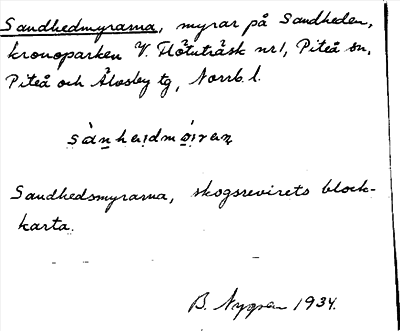 Sandhedmyrarna, myrar på Sandheden,
kronoparken V. Flötuträsk nr 1, Piteå sn,
Piteå och Älvsby tg, Norrb. l.
Sandhedsmyrarna, skogsrevirets block-
karta.
B. Nygren 1934.